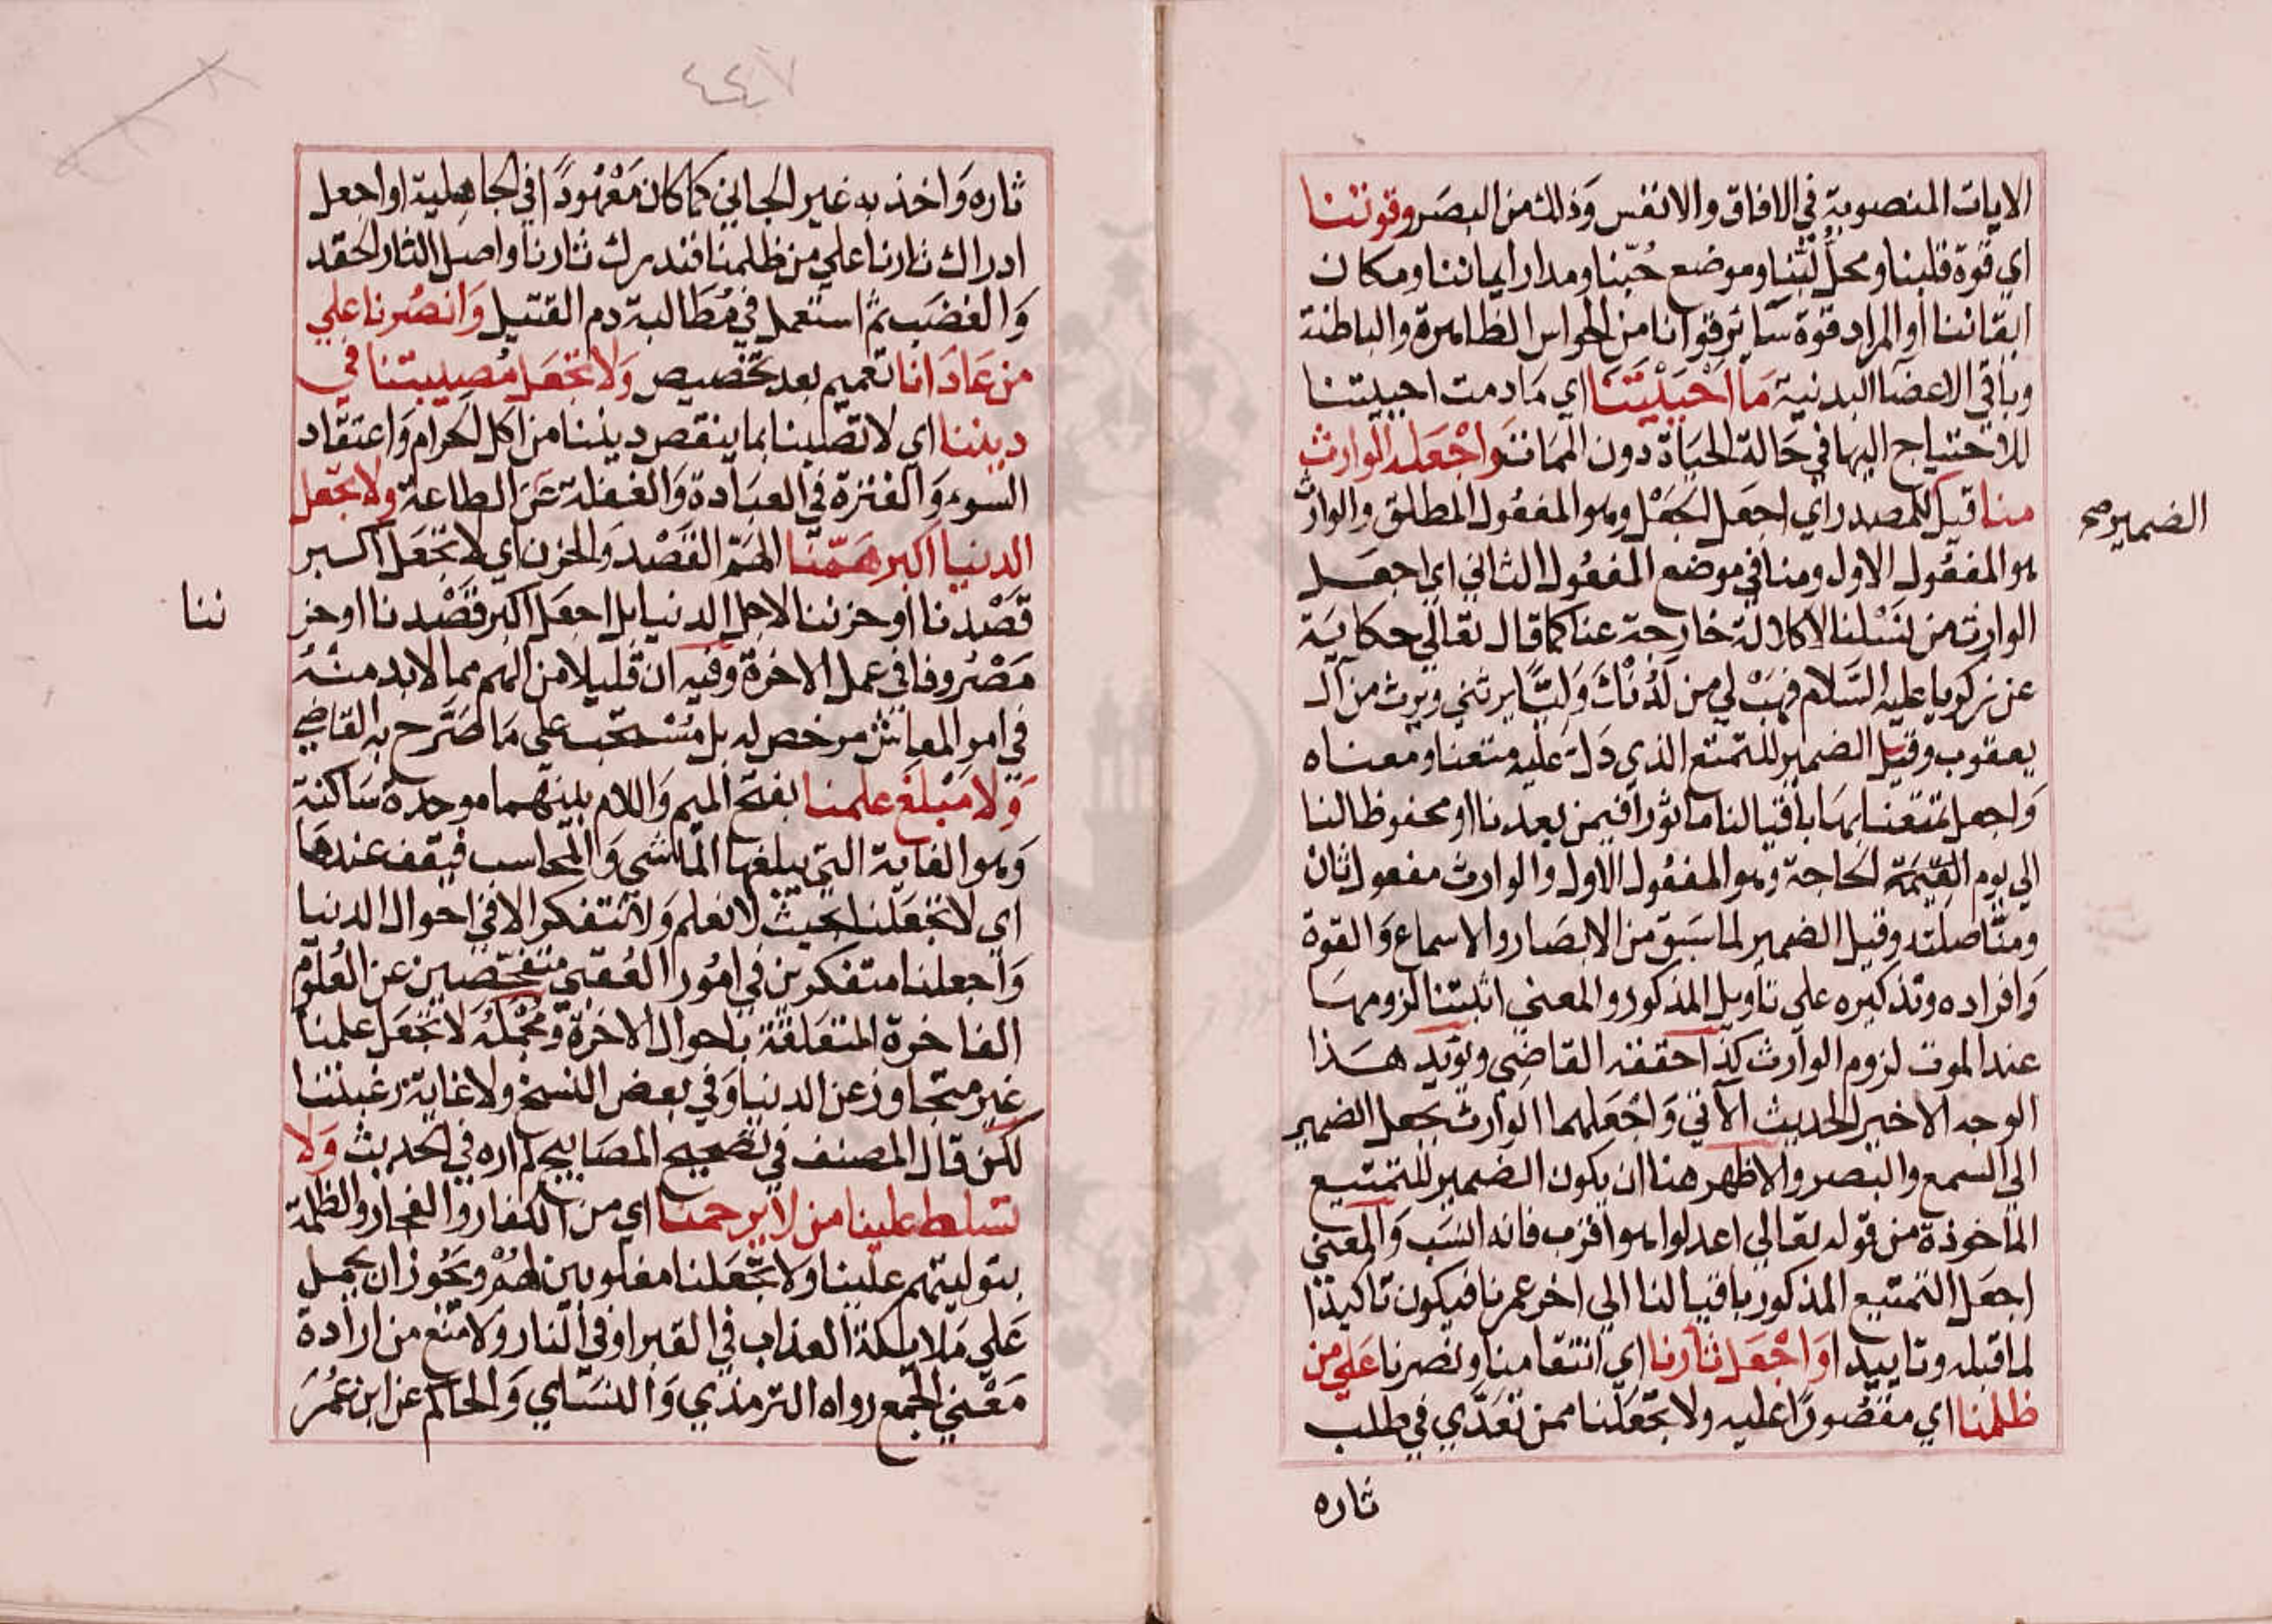 الايات المنصوبة في الافاق والانفس وذلك من البصر وقوتنا
اي قوة قلبنا ومحل لبنا وموضع حبنا ومدار ايماننا ومكان
ايقاننا او المراد قوة سائر قوانا من الحواس الظاهرة والباطنة
وباقي الاعضا البدنية ما احييتنا اي ما دمت احييتنا
للاحتياج اليها في حالة الحياة دون الممات واجعله الوارث
منا قيل للمصدر اي اجعل الجعل وهو المفعول المطلق والوارث
الضمير صح
هو المفعول الاول ومنا في موضع المفعول الثاني اي اجعل
الوارث من نسلنا لا كلالة خارجة عنا كما قال تعالي حكاية
عن زكريا عليه السلام فهب لي من لدنك وليا يرثني ويرث من آل
يعقوب وقيل الضمير للتمتع الذي دل عليه متعنا ومعناه
واجعل تمتعنا بها باقيا لنا ماثورا فيمن بعدنا او محفوظا لنا
الي يوم القيمة لحاجة وهو المفعول الاول والوارث مفعول ثان
ومنا صلته وقيل الضمير لما سبق من الابصار والاسماع والقوة
وافراده وتذكيره علي تاويل المذكور والمعني اثبتنا لزومها
عند الموت لزوم الوارث كذا حققه القاضي ويؤيد هذا
الوجه الاخير الحديث الآتي واجعلهما الوارث بجعل الضمير
الي السمع والبصر والاظهر هنا ان يكون الضمير للتمتيع
الماخوذة من قوله تعالي اعدلوا هو اقرب فانه انسب والمعني
اجعل التمتيع المذكور باقيا لنا الي اخر عمرنا فيكون تاكيدا
لما قبله وتاييدا واجعل ثارنا اي انتقامنا ونصرنا علي من
ظلمنا اي مقصورا عليه ولا تجعلنا ممن تعدي في طلب
ثاره
٤٤٧
ثاره واخذ به غير الجاني كما كان معهودا في الجاهلية او اجعل
ادراك ثارنا علي من ظلمنا فندرك ثارنا واصل الثار الحقد
والغضب ثم استعمل في مطالبة دم القتيل وانصرنا علي
من عادانا تعميم بعد تخصيص ولا تجعل مصيبتنا في
ديننا اي لا تصبنا بما ينقص ديننا من اكل الحرام واعتقاد
السوء والفترة في العبادة والغفلة عن الطاعة ولا تجعل
الدنيا اكبر همنا الهم القصد والحزن اي لا تجعل اكبر
قصدنا او حزننا لاجل الدنيا بل اجعل اكبر قصدنا او حز
ننا
مصروفا في عمل الاخرة وفيه ان قليلا من الهم مما لا بد منه
في امر المعاش مرخص له بل مستحب علي ما صرح به القاضي
ولا مبلغ علمنا بفتح الميم واللام بينهما موحدة ساكنة
وهو الغاية التي يبلغها الماشي والمحاسب فيقف عندها
اي لا تجعلنا بحيث لا نعلم ولا نتفكر الا في احوال الدنيا
واجعلنا متفكرين في امور العقبي متفحصين عن العلوم
الفاخرة المتعلقة باحوال الاخرة ومجمله لا تجعل علمنا
غير متجاوز عن الدنيا وفي بعض النسخ ولا غاية رغبتنا
لكن قال المصنف في تصحيح المصابيح لم اره في الحديث ولا
تسلط علينا من لا يرحمنا اي من الكفار والفجار والظلمة
بتوليتهم علينا ولا تجعلنا مغلوبين لهم ويجوز ان يحمل
علي ملايكة العذاب في القبر او في النار ولا منع من ارادة
معني الجمع رواه الترمذي والنساي والحاكم عن ابن عمر